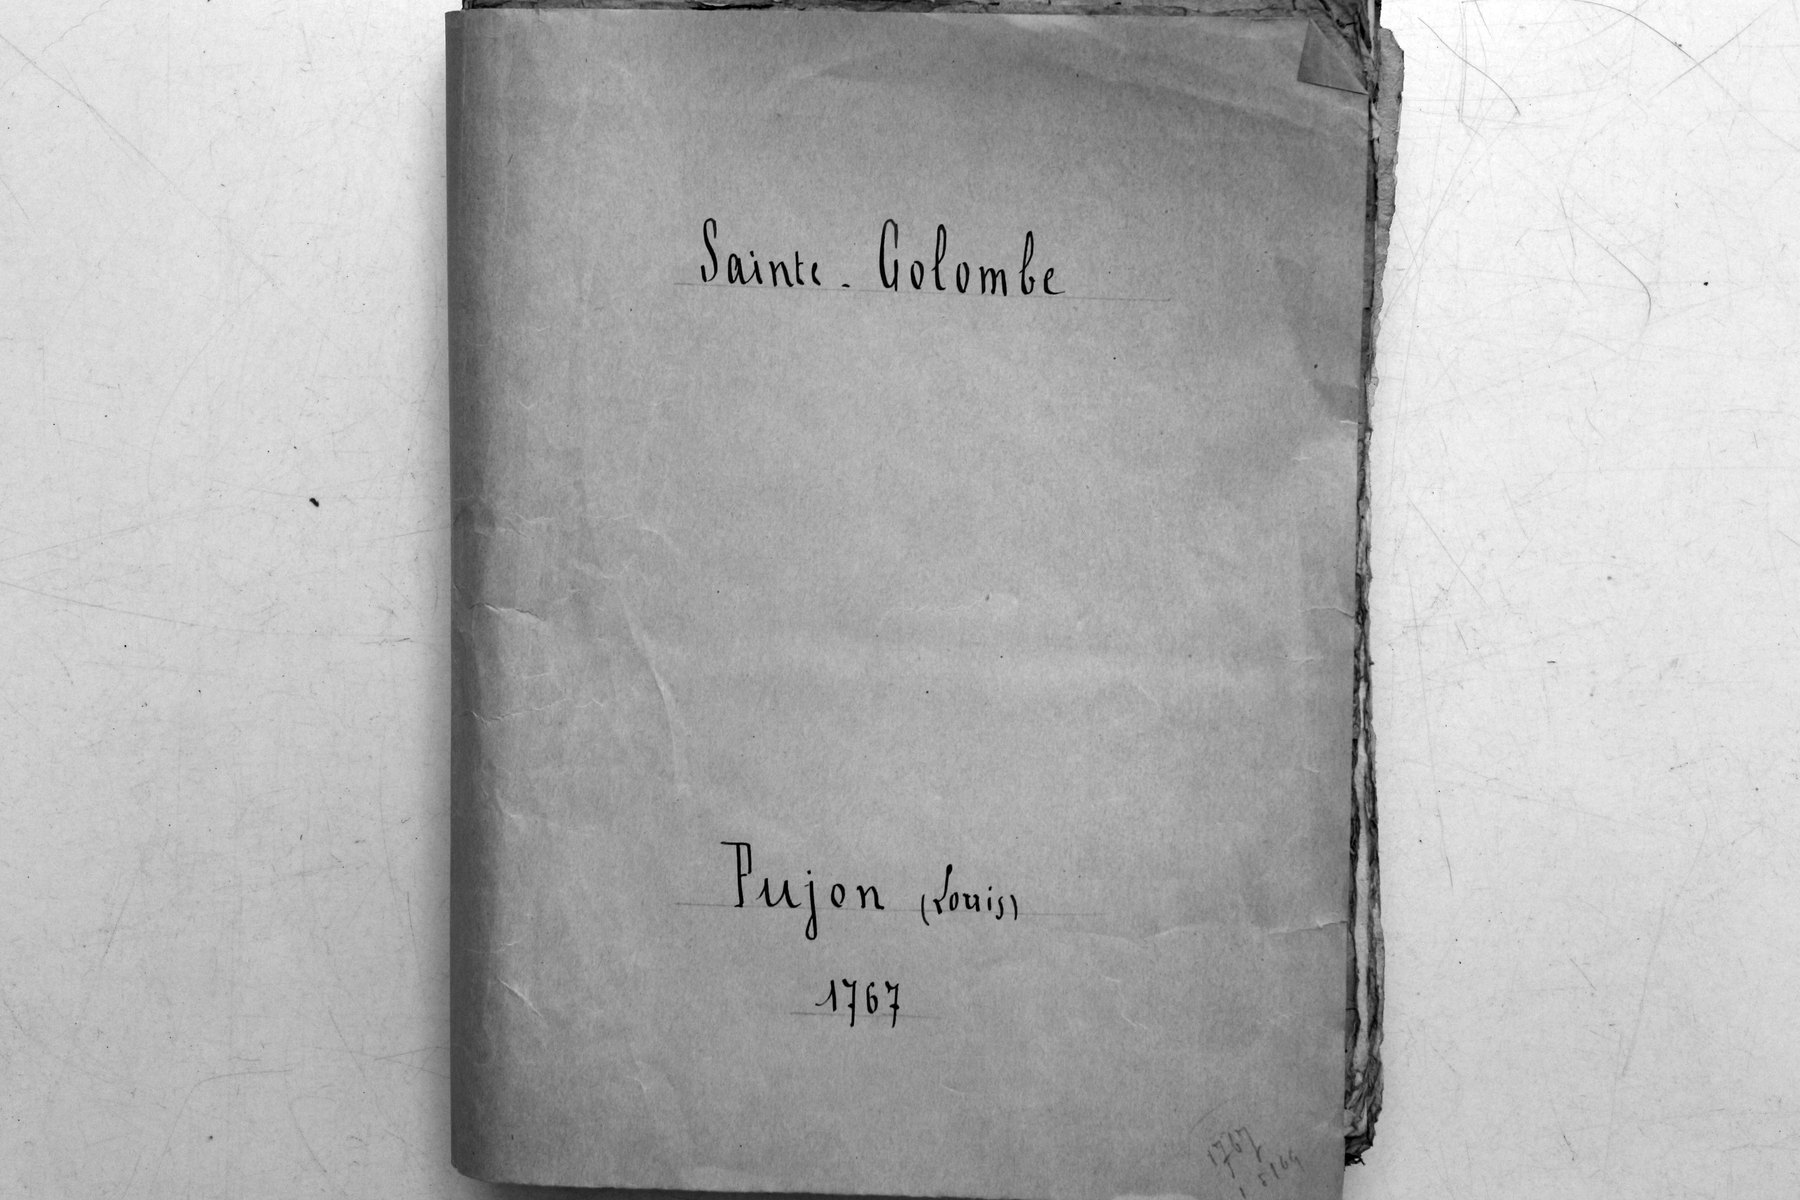 Sainte - Colombe
Pujon (Louis)
1767
1767